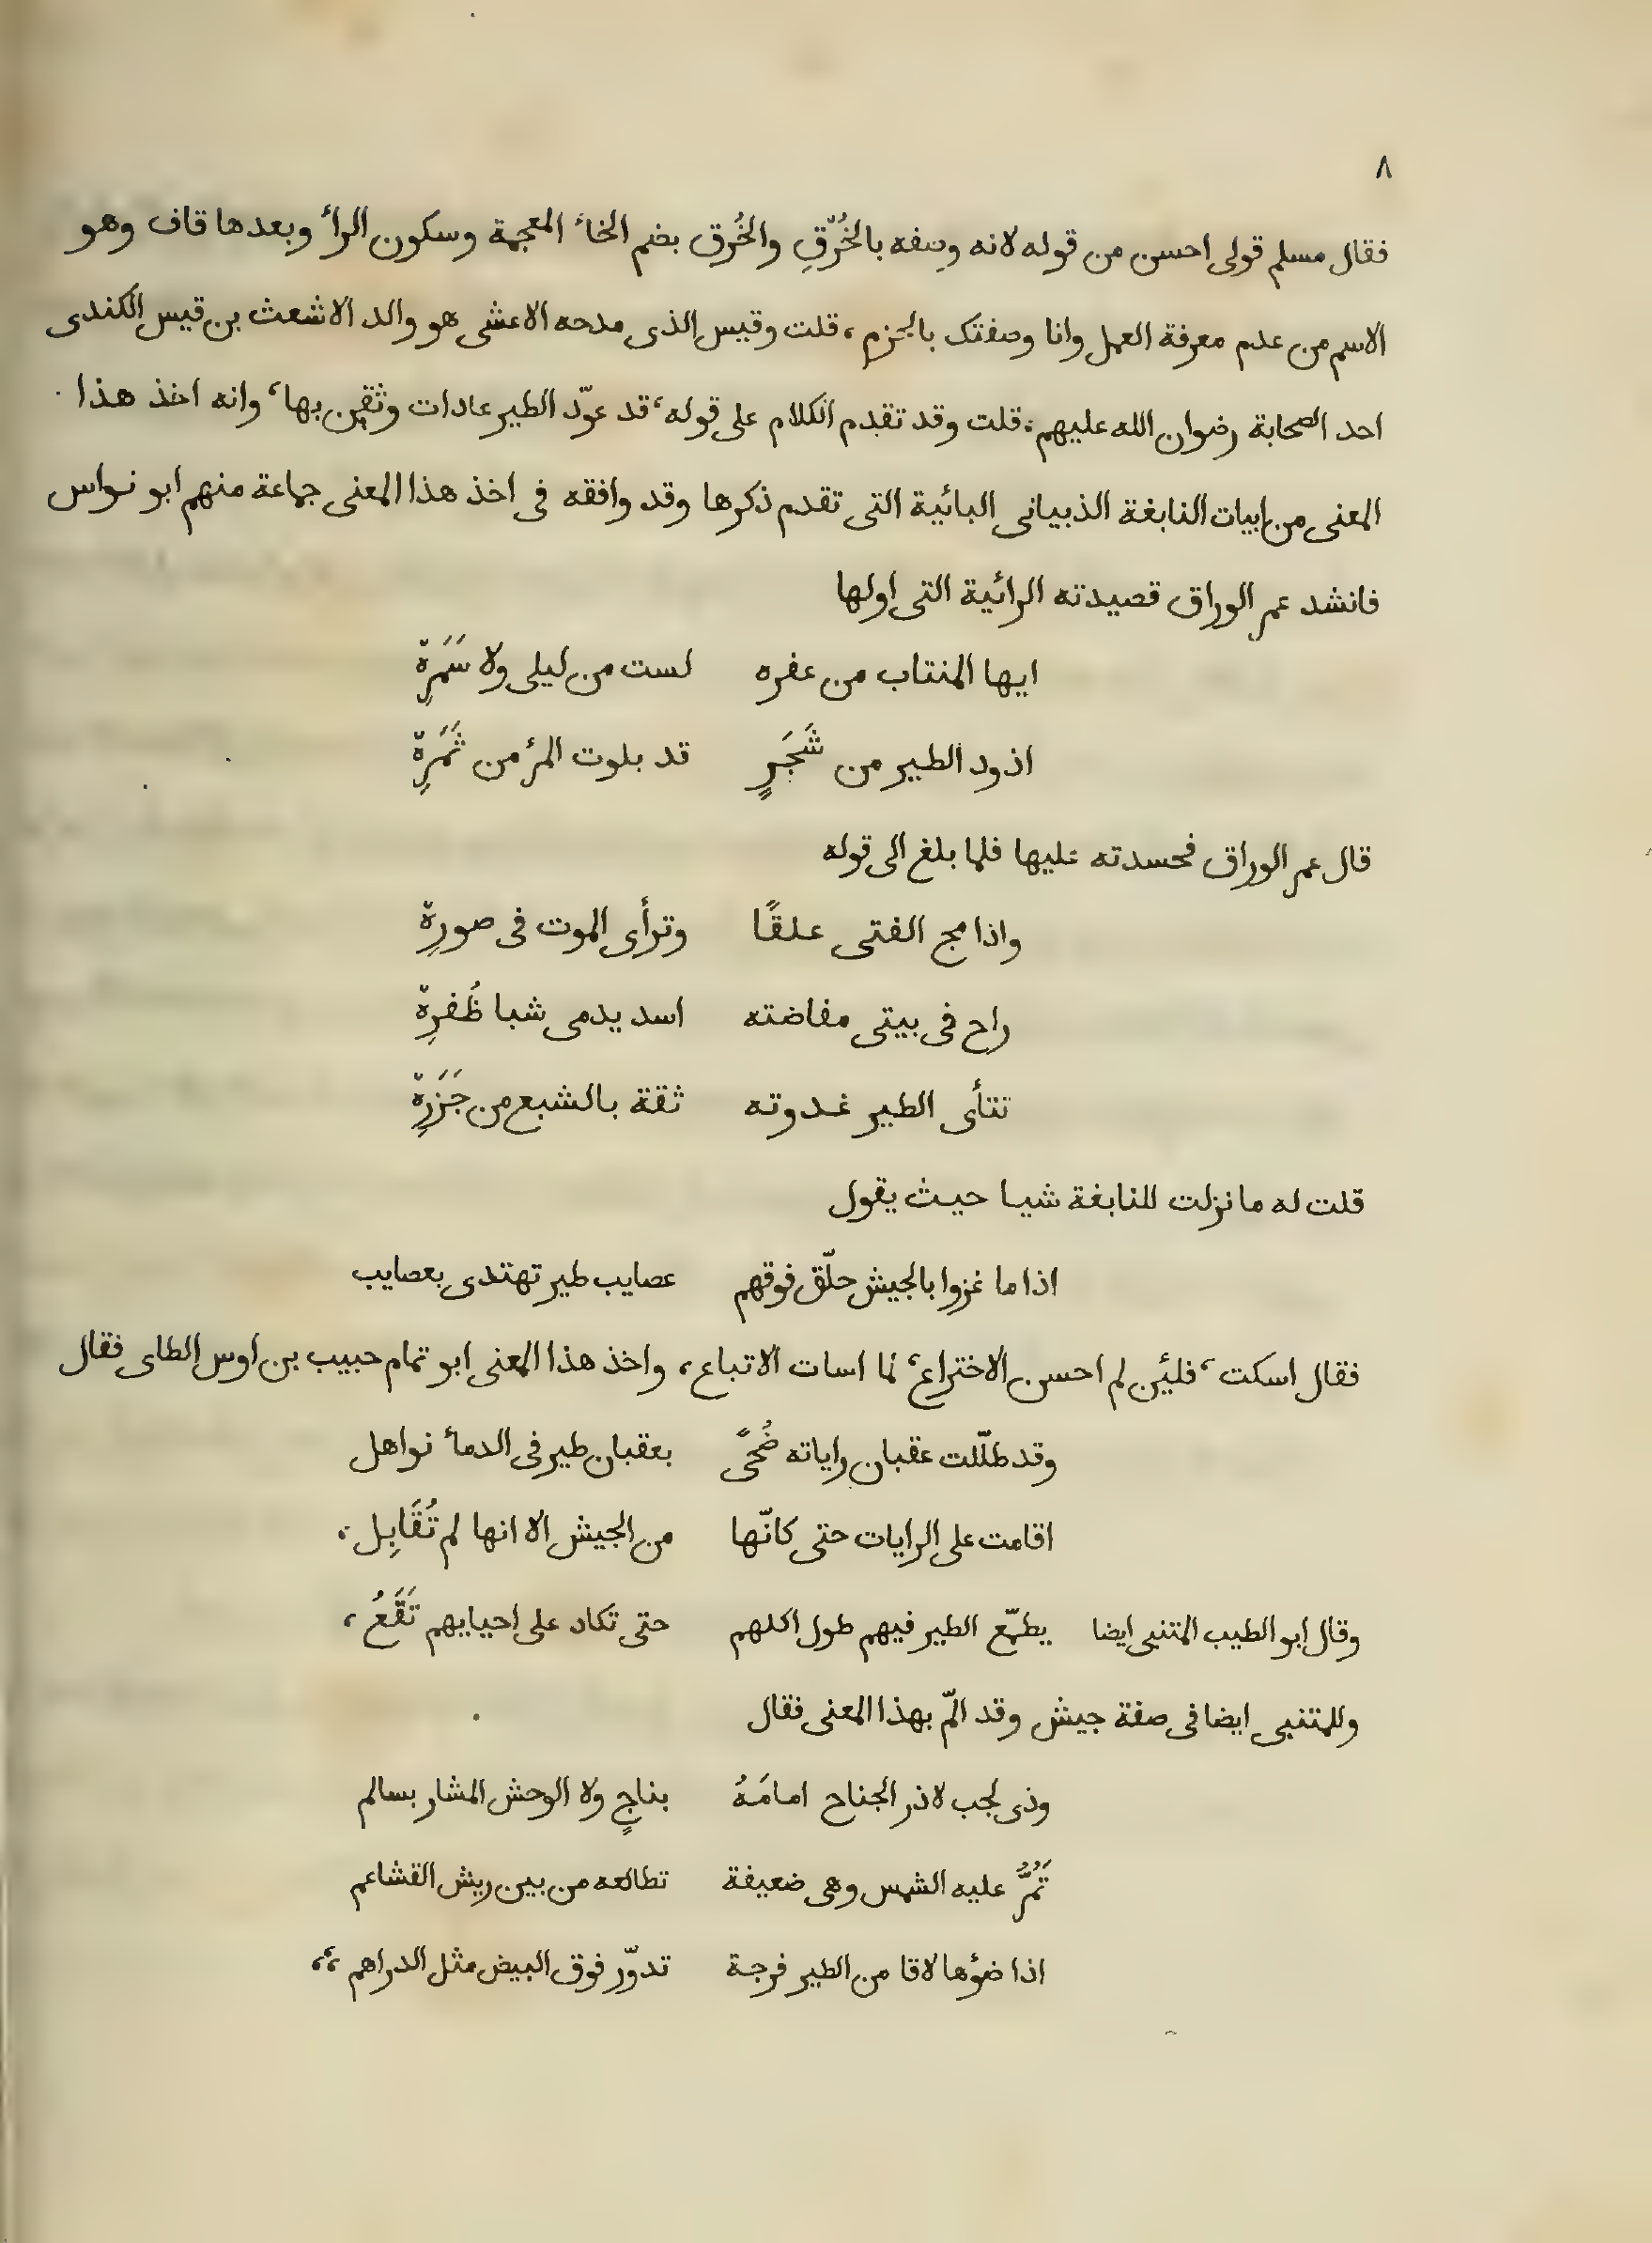 ٨
فقال مسلم قولى احسن من قوله لانه وصفه بالخُرّقِ والخُرق بضم الخاء المعجمة وسكون الراء وبعدها قاف وهو
الاسم من عدم معرفة العمل وانا وصفتك بالحزم، قلت وقيس الذى مدحه الاعشى هو والد الاشعث بن قيس الكندى
احد الصحابة رضوان الله عليهم: قلت وقد تقدم الكلام على قوله، قد عوّد الطير عادات وثقن بها، وانه اخذ هذا
المعنى من ابيات النابغة الذبيانى البائية التى تقدم ذكرها وقد وافقه فى اخذ هذا المعنى جماعة منهم ابو نواس
فانشد عمر الوراق قصيدته الرائية التى اولها
ايها المنتاب من عفره لست من ليلى ولا سَمَرِهْ
اذود الطير من شَجَرٍ قد بلوت المرّ من ثَمَرِهْ
قال عمر الوراق فحسدته عليها فلما بلغ الى قوله
واذا مج الفتى علقًا وترأى الموت فى صورِهْ
راح فى بيتى مفاضته اسد يدمى شبا ظُفرِهْ
تتأى الطير غدوته ثقة بالشبع من جَزَرِهْ
قلت له ما نزلت للنابغة شيا حيث يقول
اذا ما غزوا بالجيش حلّق فوقهم عصايب طير تهتدى بعصايب
فقال اسكت، فلئن لم احسن الاختراع، لما اسات الاتباع، واخذ هذا المعنى ابو تمام حبيب بن اوس الطاى فقال
وقد ظلّلت عقبان راياته ضُحًى بعقبان طير فى الدماء نواهل
اقامت على الرايات حتى كانّها من الجيش الا انها لم تُقَابِل.
وقال ابو الطيب المتنبى ايضا يطمّع الطير فيهم طول اكلهم حتى تكاد على احيايهم تَقَعُ،
وللمتنبى ايضا فى صفة جيش وقد المّ بهذا المعنى فقال
وذى لجب لاذر الجناح امامَهُ بناجٍ ولا الوحش المشار بسالم
تَمُرُّ عليه الشمس وهى ضعيفة تطالعه من بين ريش القشاعم
اذا ضؤها لاقا من الطير فرجة تدوّر فوق البيض مثل الدراهم ،،،